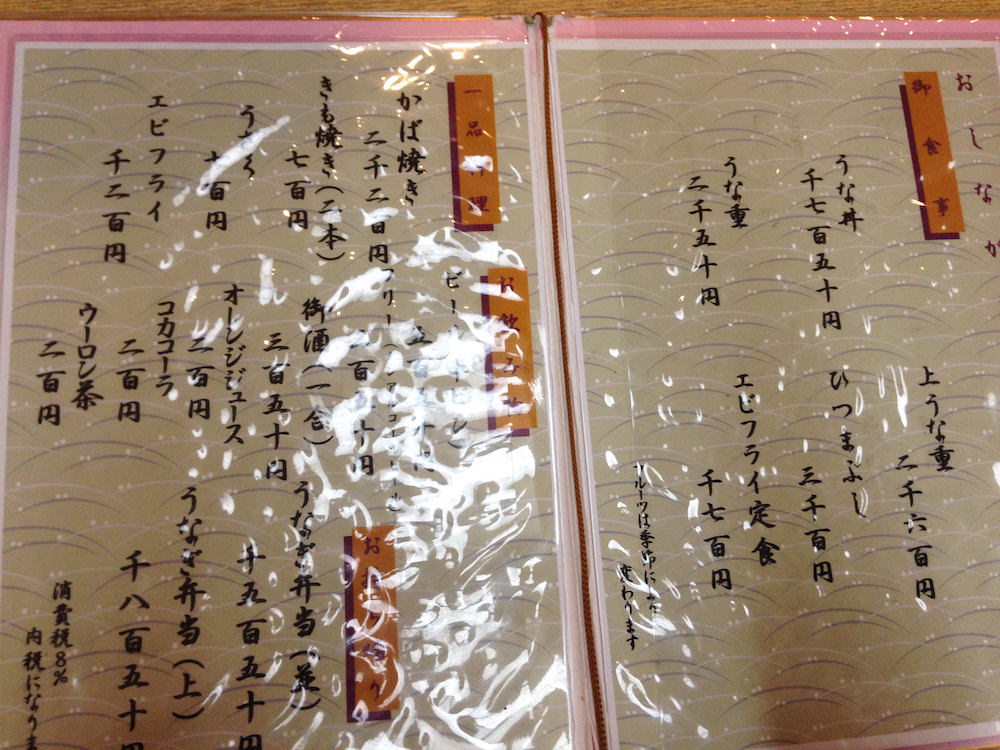 おしなが
御食事
うな丼
千七百五十円
うな重
二千五十円
上うな重
二千六百円
ひつまぶし
三千百円
エビフライ定食
千七百円
フルーツは季節により
変わります
一品料理
かば焼き
二千二百円
きも焼き(二本)
七百円
百円
エビフライ
千二百円
お飲み
御酒(一合)
三百五十円
オレンジジュース
二百円
コカコーラ
二百円
ウーロン茶
二百円
うなぎ弁当(並)
千五百五十円
うなぎ弁当(上)
千八百五十
消費税8%
内税になりま